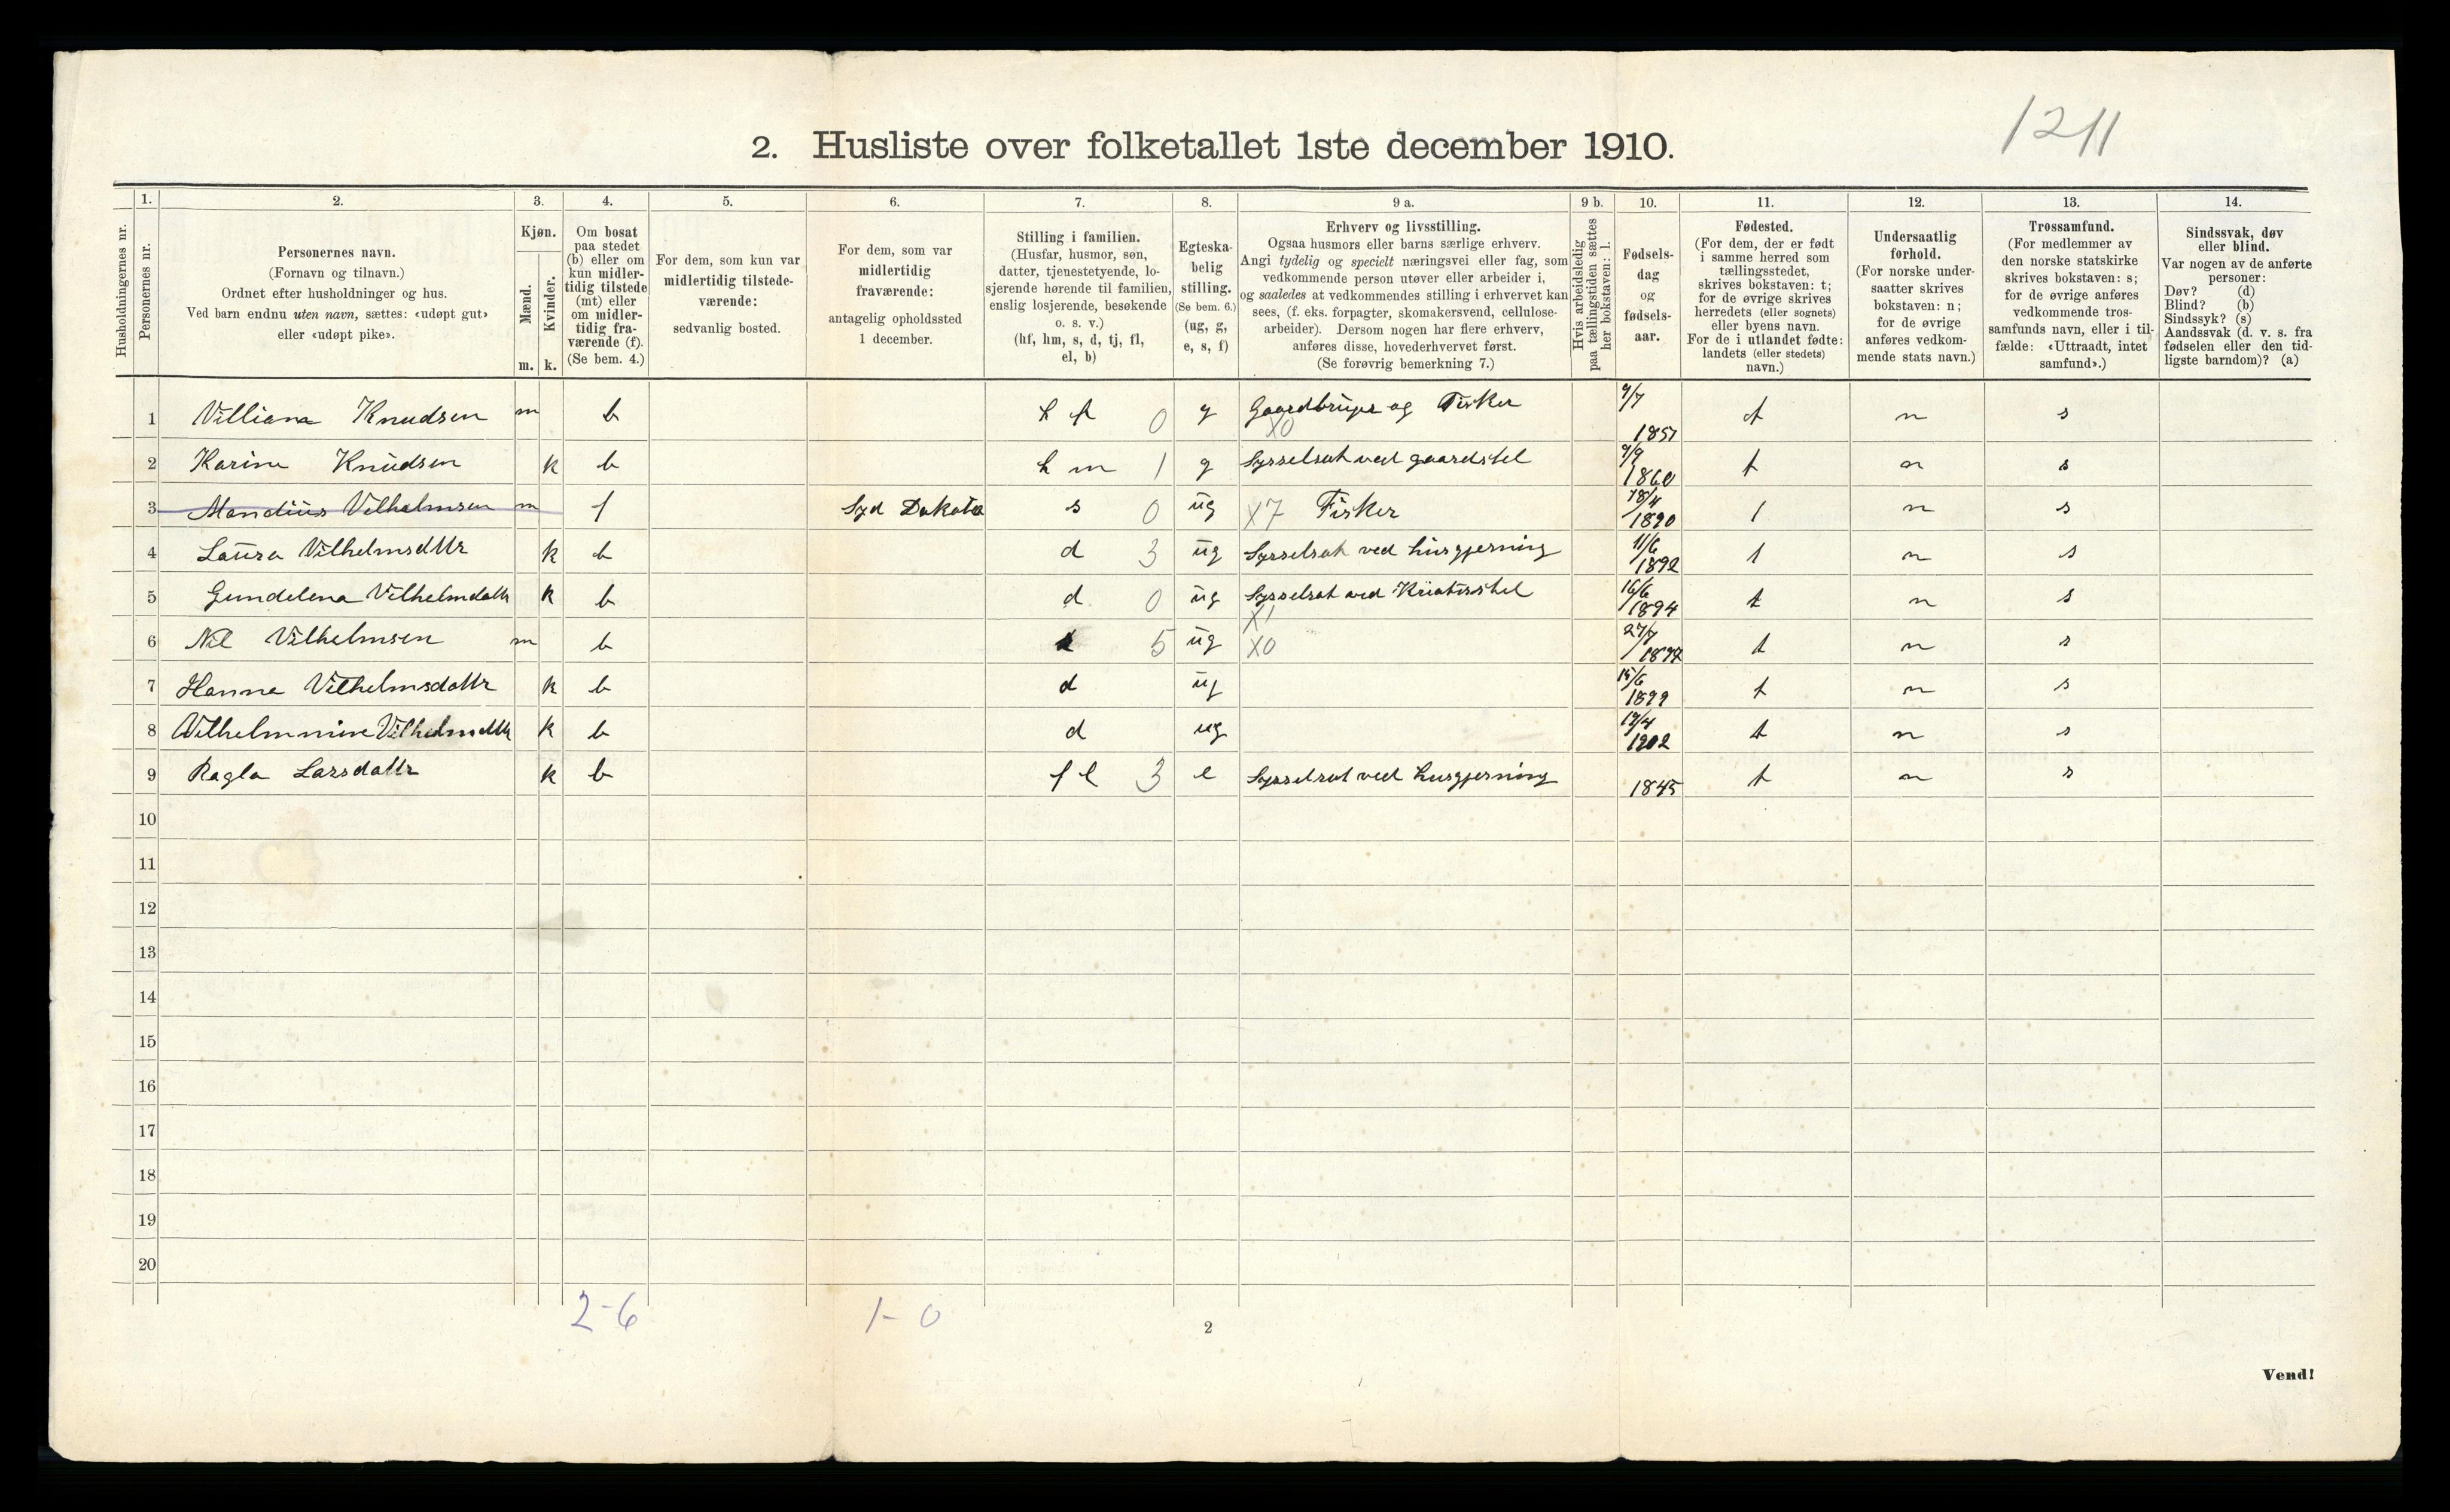 1211
2. Husliste over folketallet 1ste december 1910.
Husholdningernes nr.
1. 2. 3. 4. 5. 6. 7. 8. 9 a. 9 b. 10. 11. 12. 13. 14.
Personernes nr.
Personernes navn.
(Fornavn og tilnavn.)
Ordnet efter husholdninger og hus.
Ved barn endnu uten navn, sættes: «udøpt gut»
eller «udøpt pike».
Kjøn.
Mænd.
Kvinder.
m. k.
Om bosat
paa stedet
(b) eller om
kun midler-
tidig tilstede
(mt) eller
om midler-
tidig fra-
værende (f).
(Se bem. 4.)
For dem, som kun var
midlertidig tilstede-
værende:
sedvanlig bosted.
For dem, som var
midlertidig
fraværende:
antagelig opholdssted
1 december.
Stilling i familien.
(Husfar, husmor, søn,
datter, tjenestetyende, lo-
sjerende hørende til familien,
enslig losjerende, besøkende
o. s. v.)
(hf, hm, s, d, tj, fl,
el, b)
Egteska-
belig
stilling.
(Se bem. 6.)
(ug, g,
e, s, f)
Erhverv og livsstilling.
Ogsaa husmors eller barns særlige erhverv.
Angi tydelig og specielt næringsvei eller fag, som
vedkommende person utøver eller arbeider i,
og saaledes at vedkommendes stilling i erhvervet kan
sees, (f. eks. forpagter, skomakersvend, cellulose-
arbeider). Dersom nogen har flere erhverv,
anføres disse, hovederhvervet først.
(Se forøvrig bemerkning 7.)
Hvis arbeidsledig
paa tællingstiden sættes
her bokstaven: l.
Fødsels-
dag
og
fødsels-
aar.
Fødested.
(For dem, der er født
i samme herred som
tællingsstedet,
skrives bokstaven: t;
for de øvrige skrives
herredets (eller sognets)
eller byens navn.
For de i utlandet fødte:
landets (eller stedets)
navn.)
Undersaatlig
forhold.
(For norske under-
saatter skrives
bokstaven: n;
for de øvrige
anføres vedkom-
mende stats navn.)
Trossamfund.
(For medlemmer av
den norske statskirke
skrives bokstaven: s;
for de øvrige anføres
vedkommende tros-
samfunds navn, eller i til-
fælde: «Uttraadt, intet
samfund».)
Sindssvak, døv
eller blind.
Var nogen av de anførte
personer:
Døv? (d)
Blind? (b)
Sindssyk? (s)
Aandssvak (d. v. s. fra
fødselen eller den tid-
ligste barndom)? (a)
1 Villiam Knudsen m b hf 0 g Gaardbruger og Fisker X0 9/7 1857 t n s
2 Karine Knudsen k b hm 1 g Sysselsat ved gaardstel 9/9 1860 t n s
3 Mandius Vilhelmsen m f Syd Dakota s 0 ug X7 Fisker 18/4 1890 t n s
4 Laura Vilhelmsdttr k b d 3 ug Sysselsat ved husgjerning 11/6 1892 t n s
5 Gundelena Vilhelmdattr k b d 0 ug Sysselsat ved Kriaturstel X1 16/6 1894 t n s
6 Nil Vilhelmsen m b s 5 ug X0 27/7 1897 t n s
7 Hanna Vilhelmsdattr k b d ug 15/6 1899 t n s
8 Vilhelmmine Vilhelmdttr k b d ug 19/4 1902 t n s
9 Ragla Larsdattr k b fl 3 e Sysselsat ved husgjerning 1845 t n s
10
11
12
13
14
15
16
17
18
19
20
2-6 1-0
2
Vend!